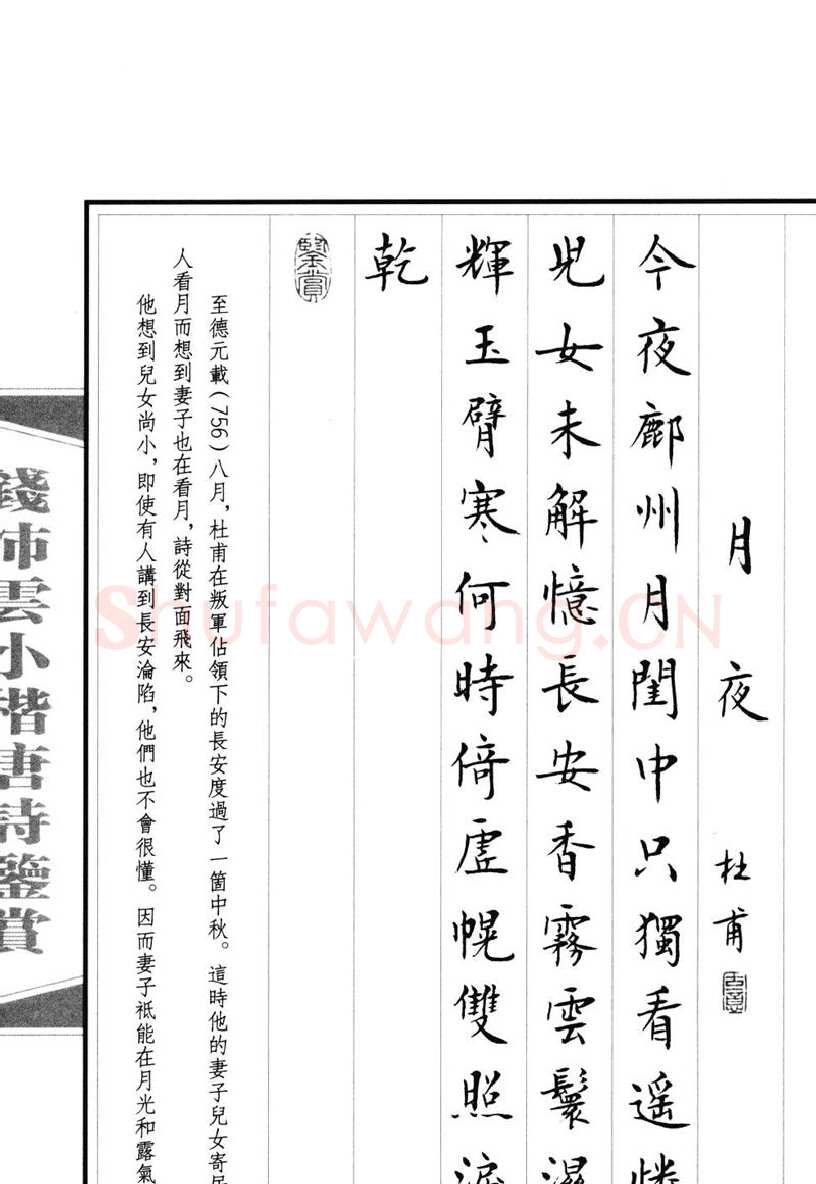 月夜 杜甫
今夜鄜州月閨中只獨看遥憐
兒女未解憶長安香霧雲鬟濕
輝玉臂寒何時倚虛幌雙照淚
乾
鑒賞
至德元載(756)八月,杜甫在叛軍佔領下的長安度過了一箇中秋。這時他的妻子兒女寄居
人看月而想到妻子也在看月,詩從對面飛來。
他想到兒女尚小,即使有人講到長安淪陷,他們也不會很懂。因而妻子衹能在月光和露氣
錢沛雲小楷唐詩鑒賞
Shufawang.CN